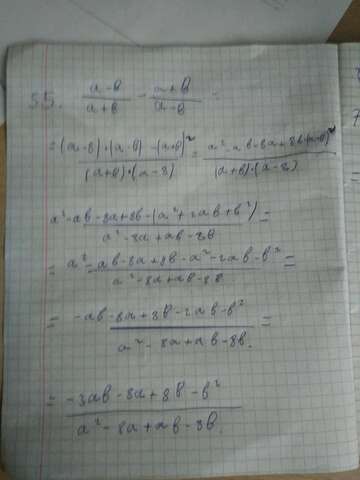 55. (a-b)/(a+b) - (a+b)/(a-8) =
= ((a-8)·(a-b)-(a+b)²)/((a+b)·(a-8)) = (a²-ab-8a+8b-(a+b)²)/((a+b)·(a-8))
(a²-ab-8a+8b-(a²+2ab+b²))/(a²-8a+ab-8b) =
= (a²-ab-8a+8b-a²-2ab-b²)/(a²-8a+ab-8b) =
= (-ab-8a+8b-2ab-b²)/(a²-8a+ab-8b.) =
= (-3ab-8a+8b-b²)/(a²-8a+ab-8b.)